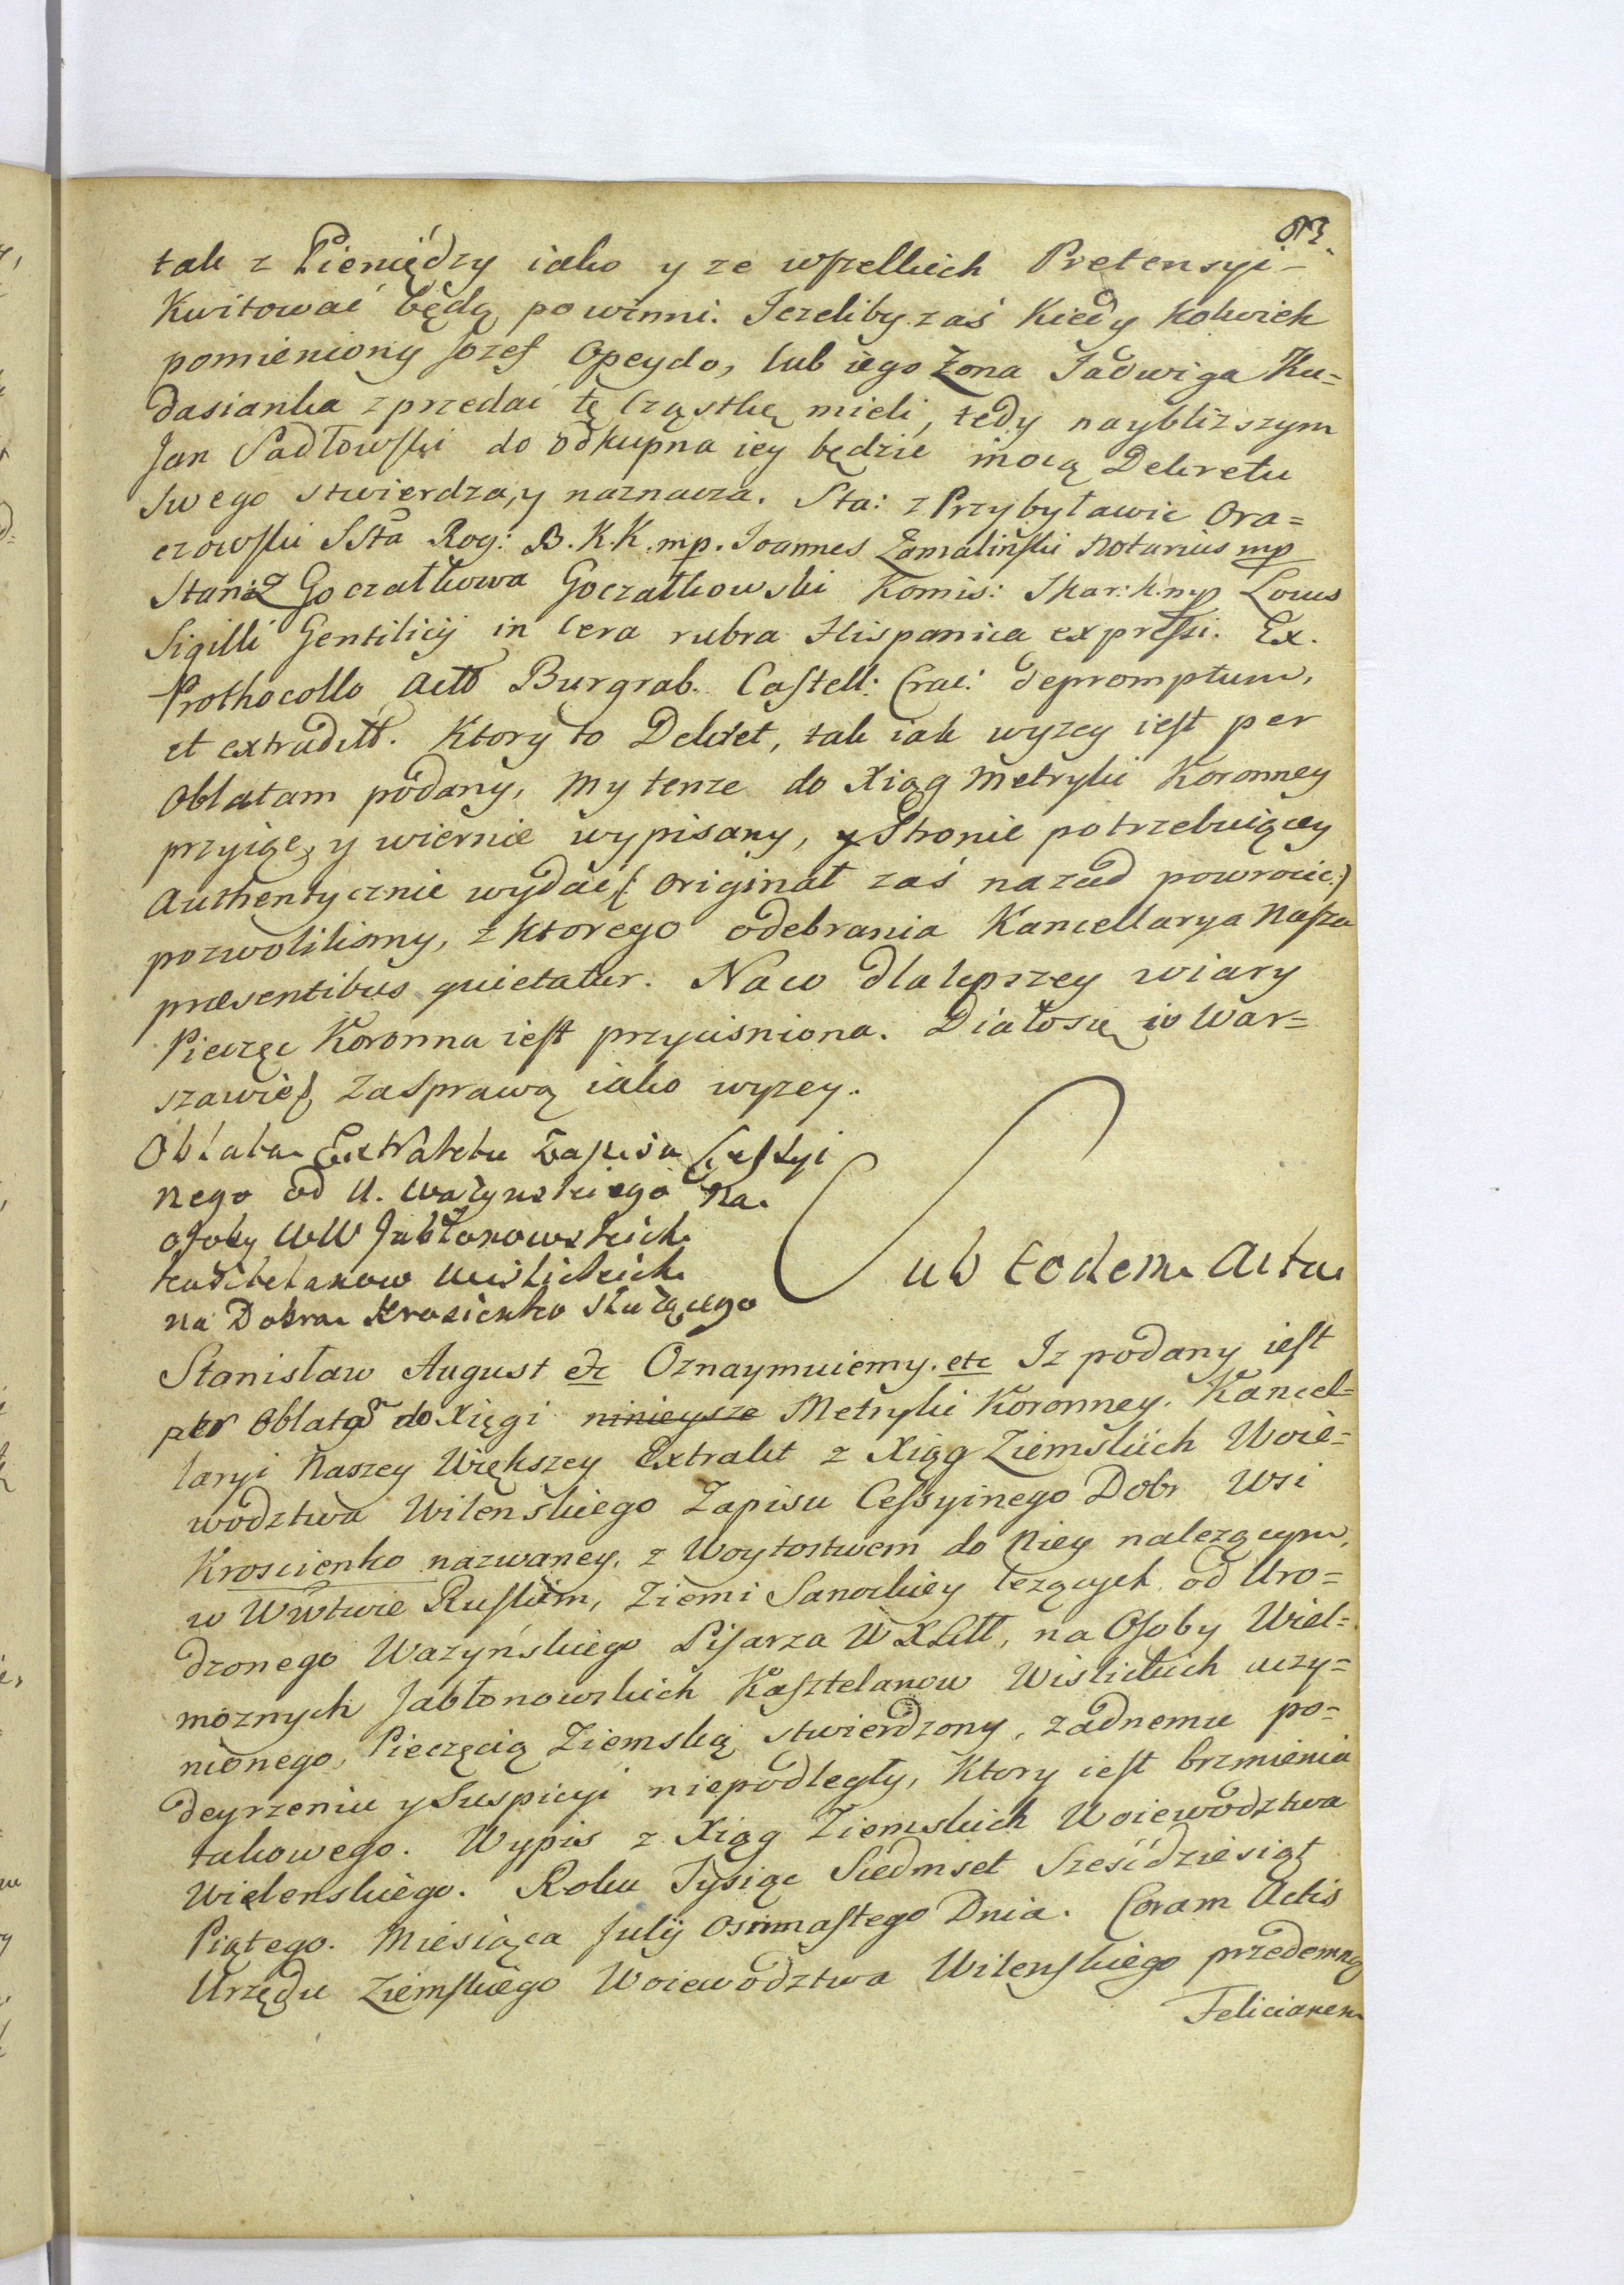 83.
tak z Pieniędzy iako y ze wszelkich Pretensyi
Kwitować będą powinni. Jezeliby zaś kiedy kolwiek
pomieniony Jozef Opeydo, lub iego Zona Jadwiga Ku=
dasianka zprzedać tę Cząstkę mieli, tedy naybliższym
Jan Sadłowski do odkupna iey będzie mocą Dekretu
swego stwierdza, y naznacza. Sta: z Przybyławic Ora=
czowski SSta Rog: B.K.K. mp. Joannes Zamaliński Notarius mp
Stan: Z Goczałkowa Goczałkowski Komis: Skar: K: mp Locus
Sigilli Gentilicij in Cera rubra Hispanica expressi. Ex.
Prothocollo Actō Burgrab. Castell: Crac: depromptum,
et extraditt. Ktory to Dekret, tak iak wyzey iest per
Oblatam podany, My tenze do Xiąg Metryki Koronney
przyiąć, y wiernie wypisany, y Stronie potrzebuiącey
Authentycznie wydać (: Originał zaś nazad powrocic:)
pozwolilismy, z ktorego odebrania Kancellarya Nasza
præsentibus quietatur. Na co dla lepszey wiary
Pieczęć Koronna iest przyciśniona. Działosię w War=
szawie, Zasprawą iako wyzey.
Oblata Extraktu Zapisu Cessyi
nego od U. Wazynskiego na
osoby WW Jabłonowskich
kasztelanow Wislickich
na Dobra Krosienko służącego
Sub Eodem Actu
Stanisław August etc Oznaymuiemy. etc Iz podany iest
per Oblatą do Xięgi ninieysze Metryki Koronney. Kancel=
laryi Naszey Większey Extrakt z Xiąg Ziemskich Woie=
wodztwa Wilenskiego Zapisu Cessyinego Dobr Wsi
Kroscienko nazwaney, z Woytostwem do niey nalezącym,
w Wwtwie Ruskim, Ziemi Sanockiey lezących od Uro=
dzonego Wazyńskiego Pisarza W X Litt, na Osoby Wiel=
moznych Jabłonowskich Kasztelanow Wislickich uczy=
nionego, Pieczęcią Ziemską stwierdzony, zadnemu po=
deyrzeniu y Suspicyi niepodległy, Ktory iest brzmienia
takowego. Wypis z Xiąg Ziemskich Woiewodztwa
Wielenskiego. Roku Tysiąc Siedmset Sześćdziesiąt
Piątego. Miesiąca Julij Osimnastego Dnia. Coram Actis
Urzędu Ziemskiego Woiewodztwa Wilenskiego przedemną
Felicianem